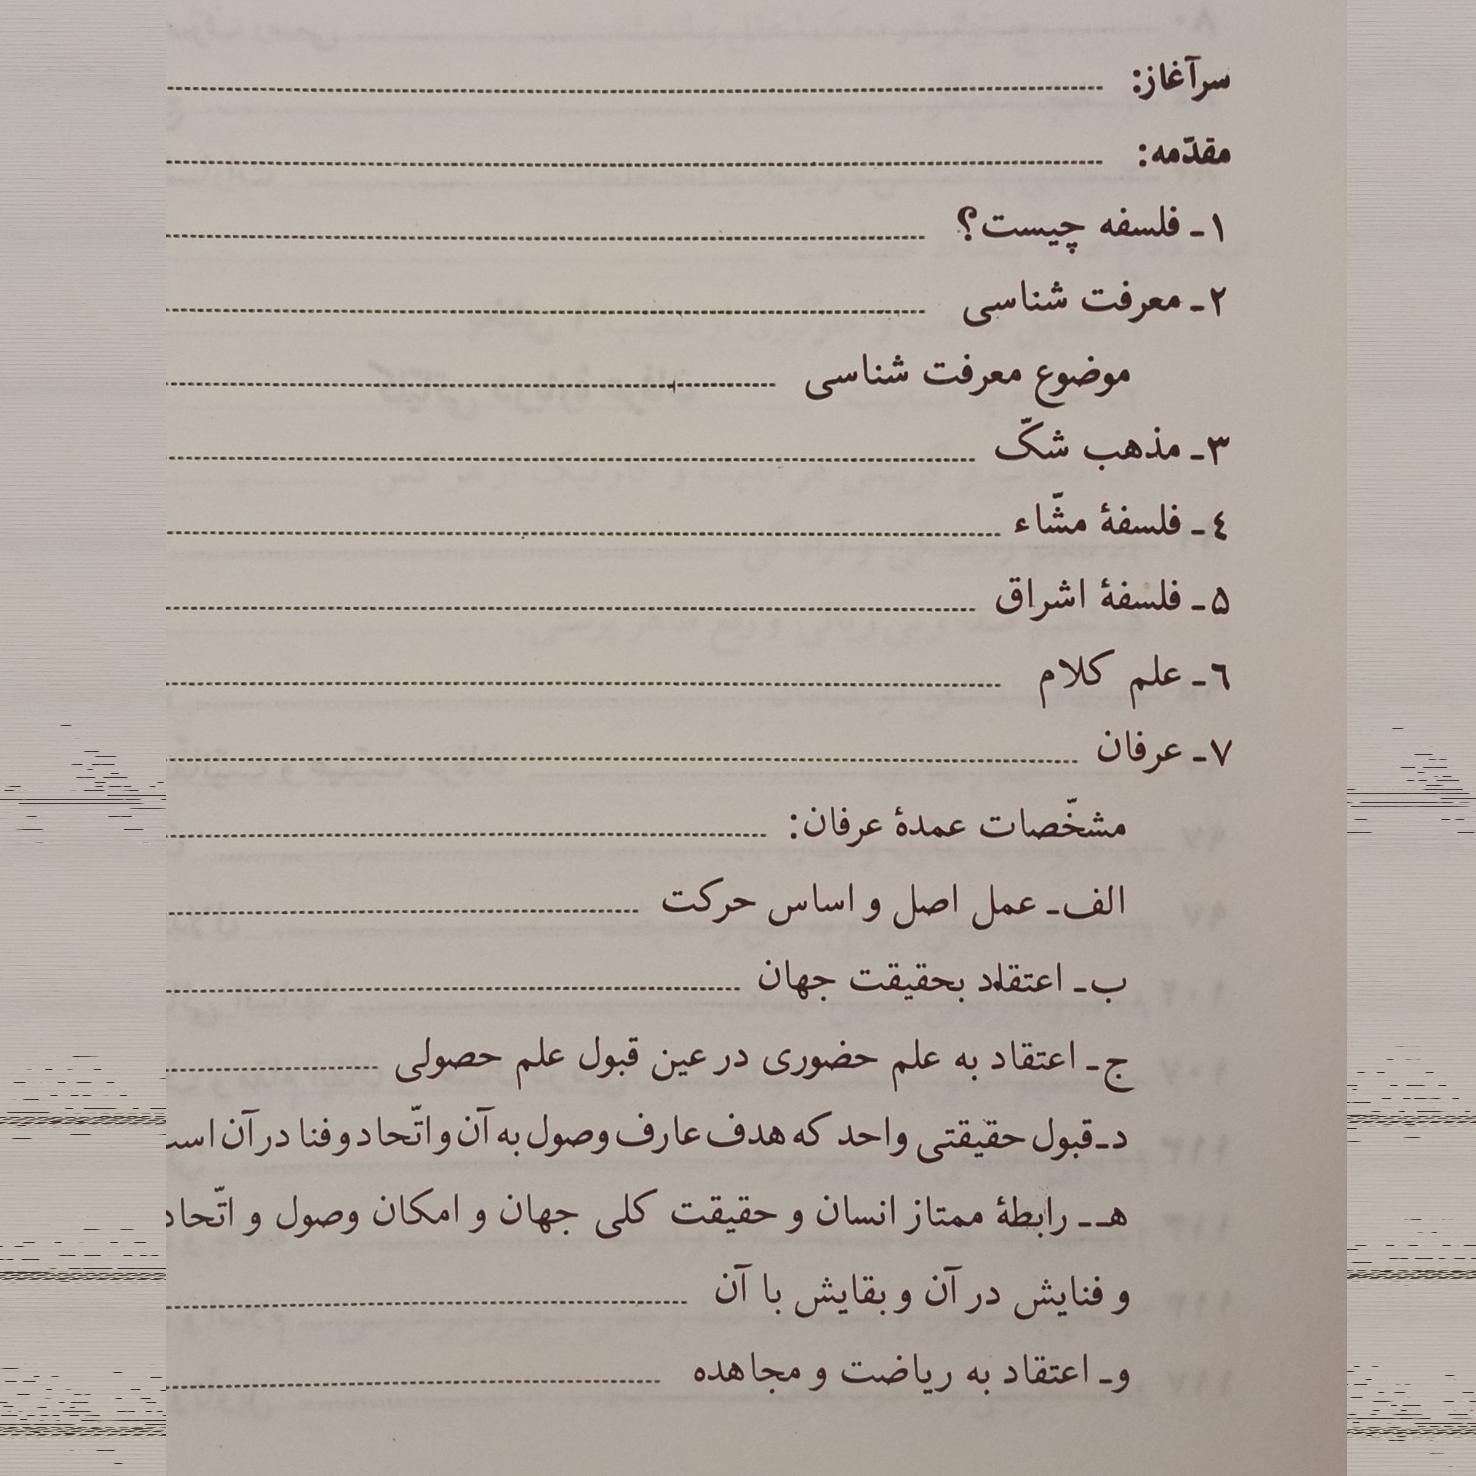 سرآغاز:
مقدّمه:
۱ـ فلسفه چیست؟
۲ـ معرفت شناسی
موضوع معرفت شناسی
۳ـ مذهب شکّ
٤ـ فلسفۀ مشّاء
۵ـ فلسفۀ اشراق
٦ـ علم کلام
۷ـ عرفان
مشخّصات عمدۀ عرفان:
الف ـ عمل اصل و اساس حرکت
ب ـ اعتقاد بحقیقت جهان
ج ـ اعتقاد به علم حضوری در عین قبول علم حصولی
د ـ قبول حقیقتی واحد که هدف عارف وصول به آن و اتّحاد و فنا در آن
هـ ـ رابطۀ ممتاز انسان و حقیقت کلی جهان و امکان وصول و اتّحاد
و فنایش در آن و بقایش با آن
و ـ اعتقاد به ریاضت و مجاهده